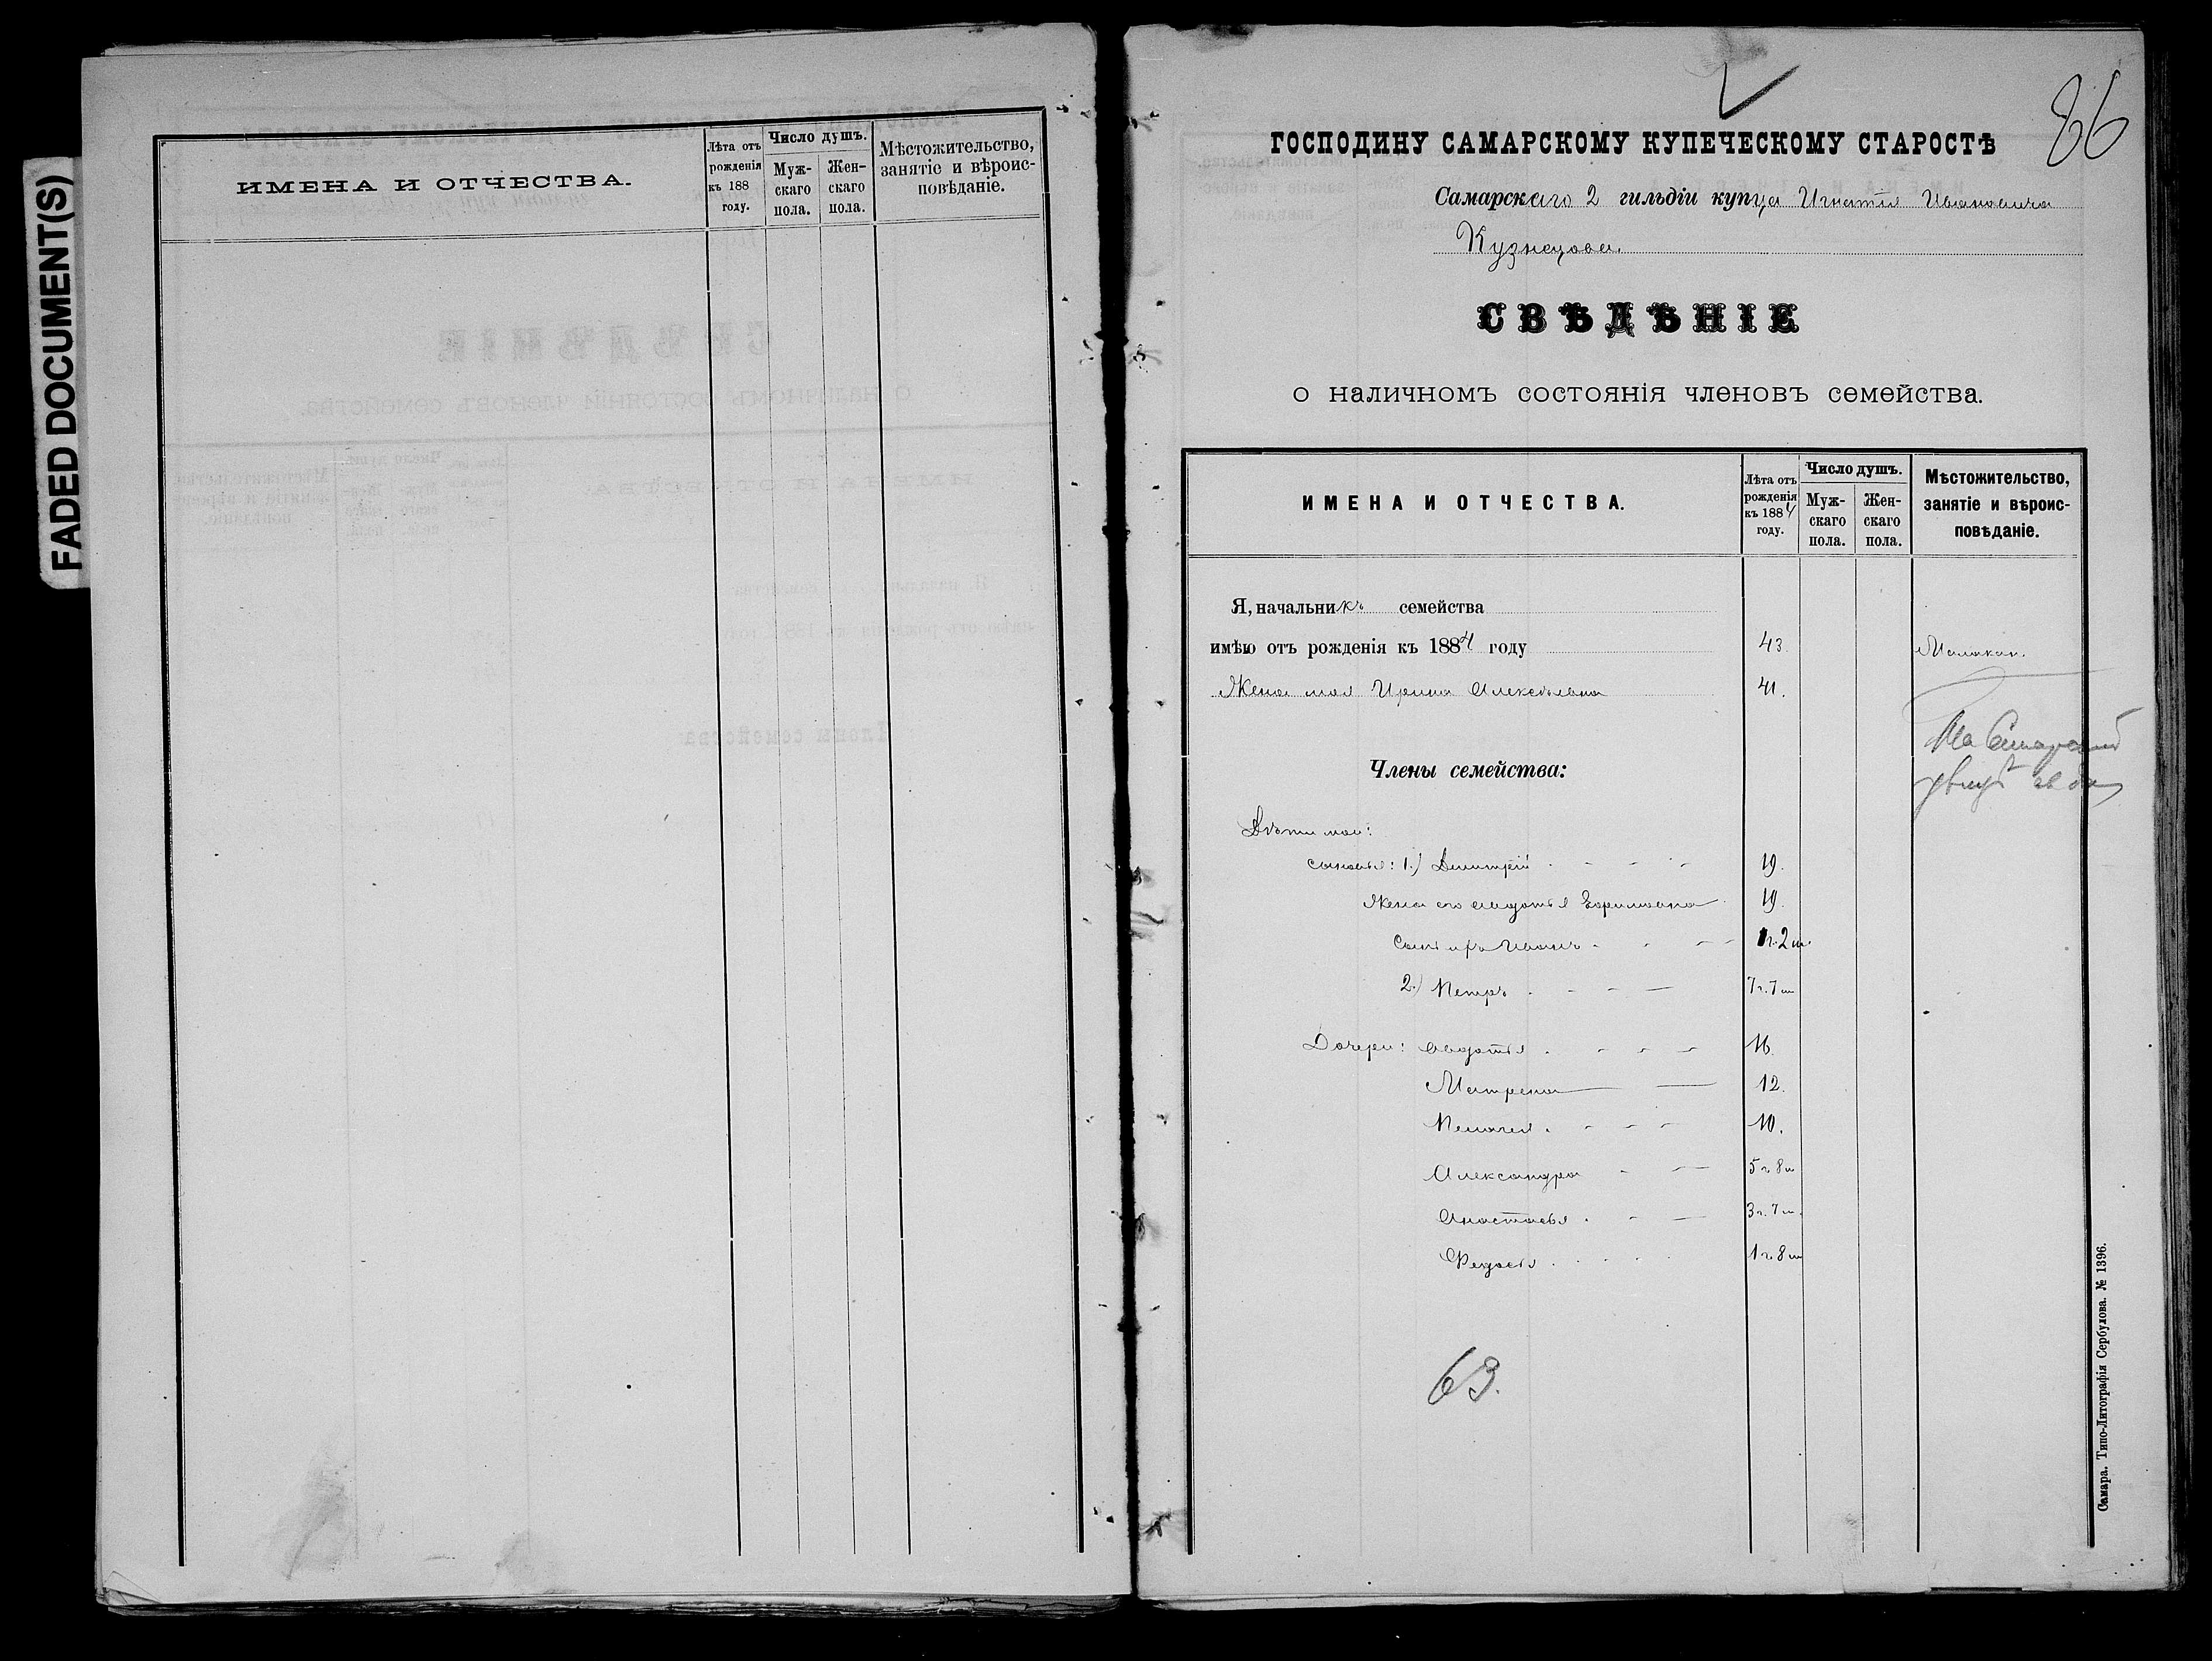 FADED DOCUMENT(S)
ИМЕНА И ОТЧЕСТВА.
Лѣта отъ рожденія къ 188 году.
Число душъ.
Муж-скаго пола.
Жен-скаго пола.
Мѣстожительство, занятіе и вѣроис-повѣданіе.
86
ГОСПОДИНУ САМАРСКОМУ КУПЕЧЕСКОМУ СТАРОСТѢ
Самарскаго 2 гильдіи купца Игнатія Ивановича
Кузнецова.
СВѢДѢНІЕ
о наличномъ состоянія членовъ семейства.
ИМЕНА И ОТЧЕСТВА.
Лѣта отъ рожденія къ 1884 году.
Число душъ.
Муж-скаго пола.
Жен-скаго пола.
Мѣстожительство, занятіе и вѣроис-повѣданіе.
Я, начальникъ семейства
имѣю отъ рожденія къ 1884 году 43. Малакан.
Жена моя Ирина Алексѣевна 41.
На Самарской
Члены семейства:
Дѣти мои:
сыновья: 1.) Дмитрій 19.
Жена его Авдотья 19.
Сынъ ихъ Иванъ 1 г. 2 м.
2.) Петръ 7 г. 7 м
Дочери: Авдотья 16.
Матрена 12.
Пелагея 10.
Александра 5 г 8 м
Анастасья 3 г. 7 м.
Федосья 1 г. 8 м
63.
Самара. Типо-Литографія Сербулова. № 1396.